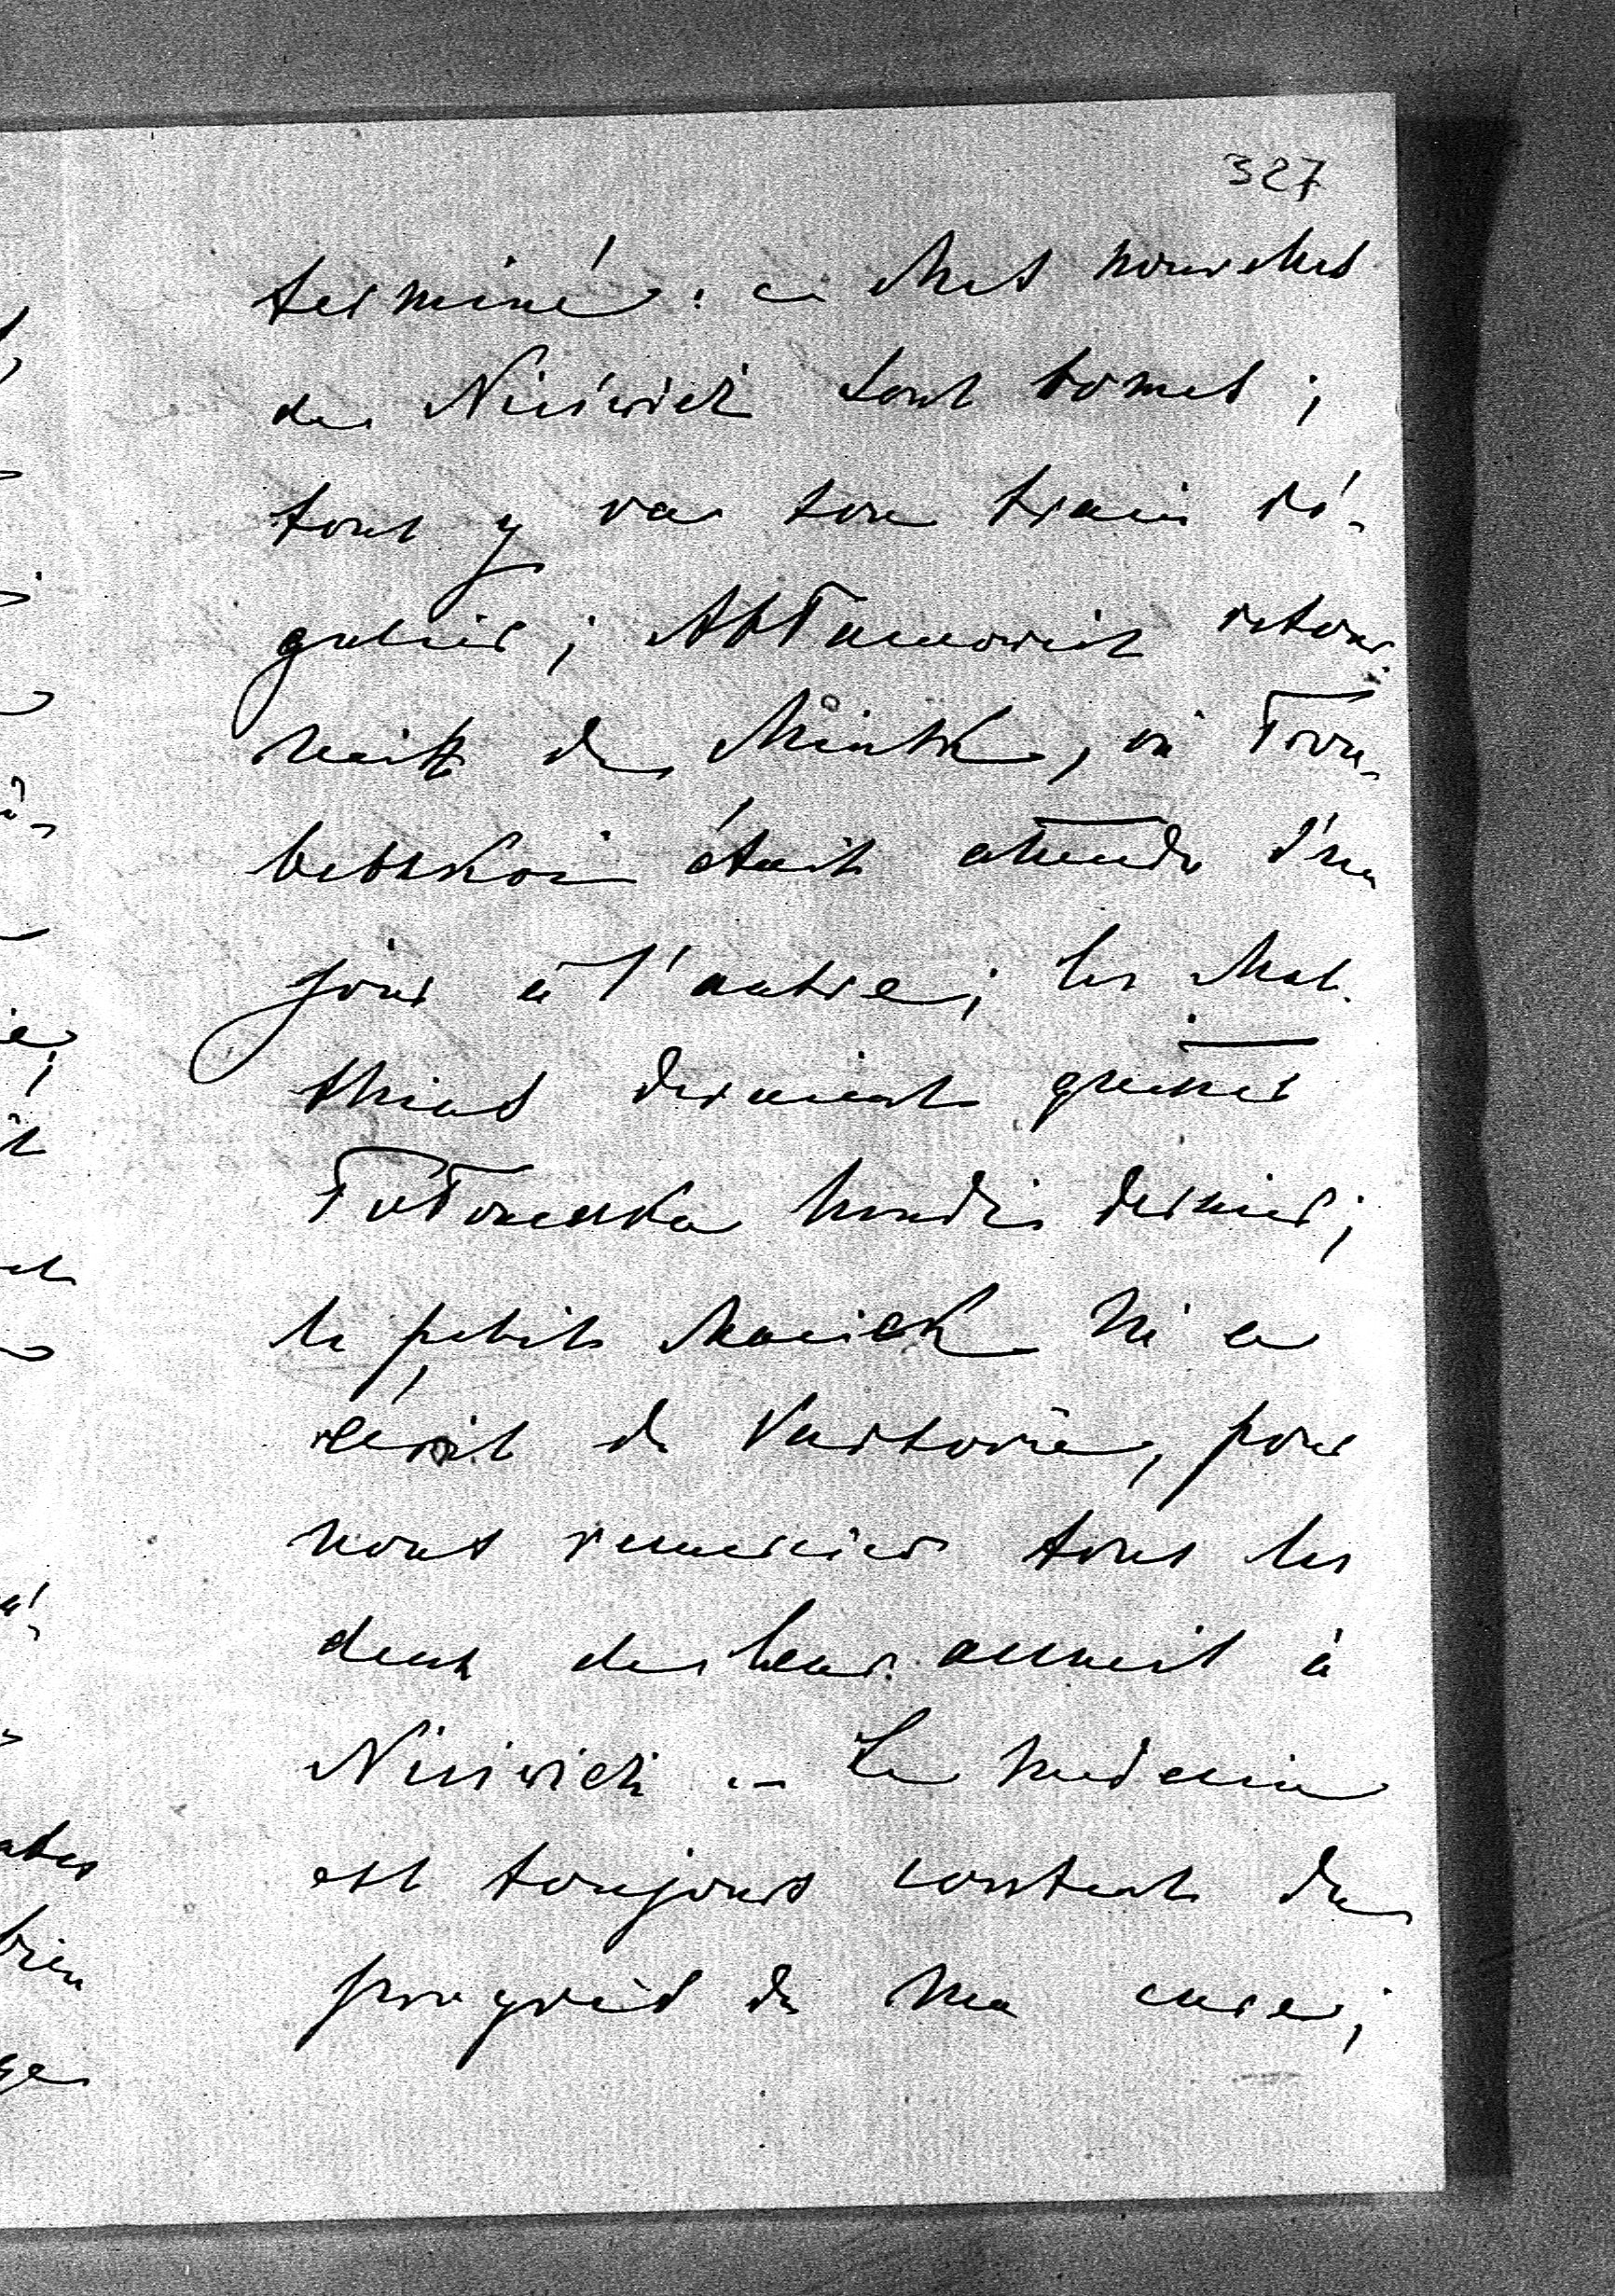 327
terminé. — Mes nouvelles
de Nieśwież sont bonnes;
tout y va son train ré-
gulier; Abłamowicz retour-
nait de Mińsk, où Trou-
betskoi était attendu d'un
jour à l'autre; les Mat-
thias devaient quitter
Tutonenka lundi dernier;
le petit Maciek m'a
écrit de Varsovie, pour
nous remercier tous les
deux de leur accueil à
Nieśwież. — Le médecin
est toujours content du
progrès de ma cure;